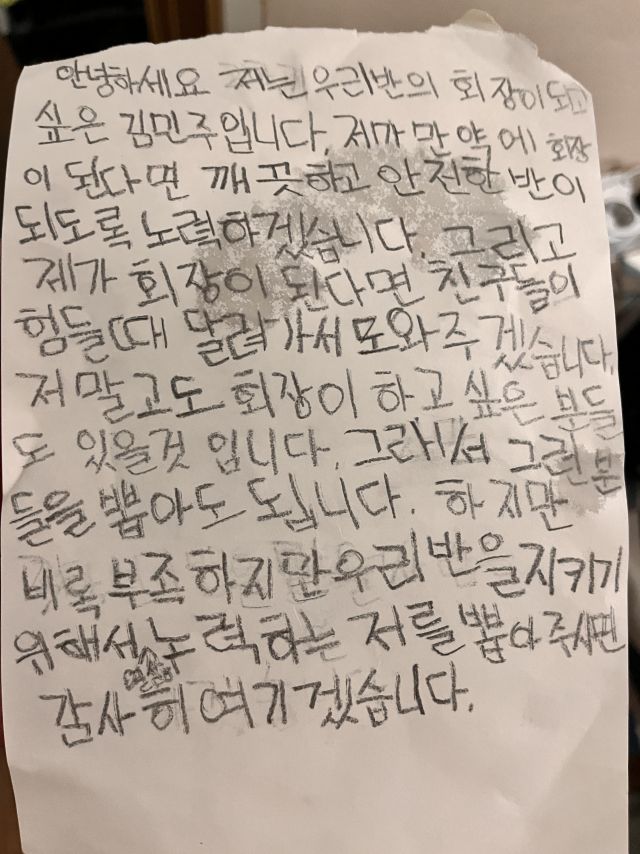 안녕하세요 저는 우리반의 회장이 되고
싶은 김민주입니다. 저가 만약에 회장
이 된다면 깨끗하고 안전한 반이
되도록 노력하겠습니다. 그리고
제가 회장이 된다면 친구들이
힘들때 달려가서 도와주겠습니다.
저 말고도 회장이 하고 싶은 분들
도 있을것 입니다. 그래서 그런 분
들을 뽑아도 됩니다. 하지만
비록 부족하지만 우리 반을 지키기
위해서 노력하는 저를 뽑아 주시면
열심히
감사히 여기겠습니다.